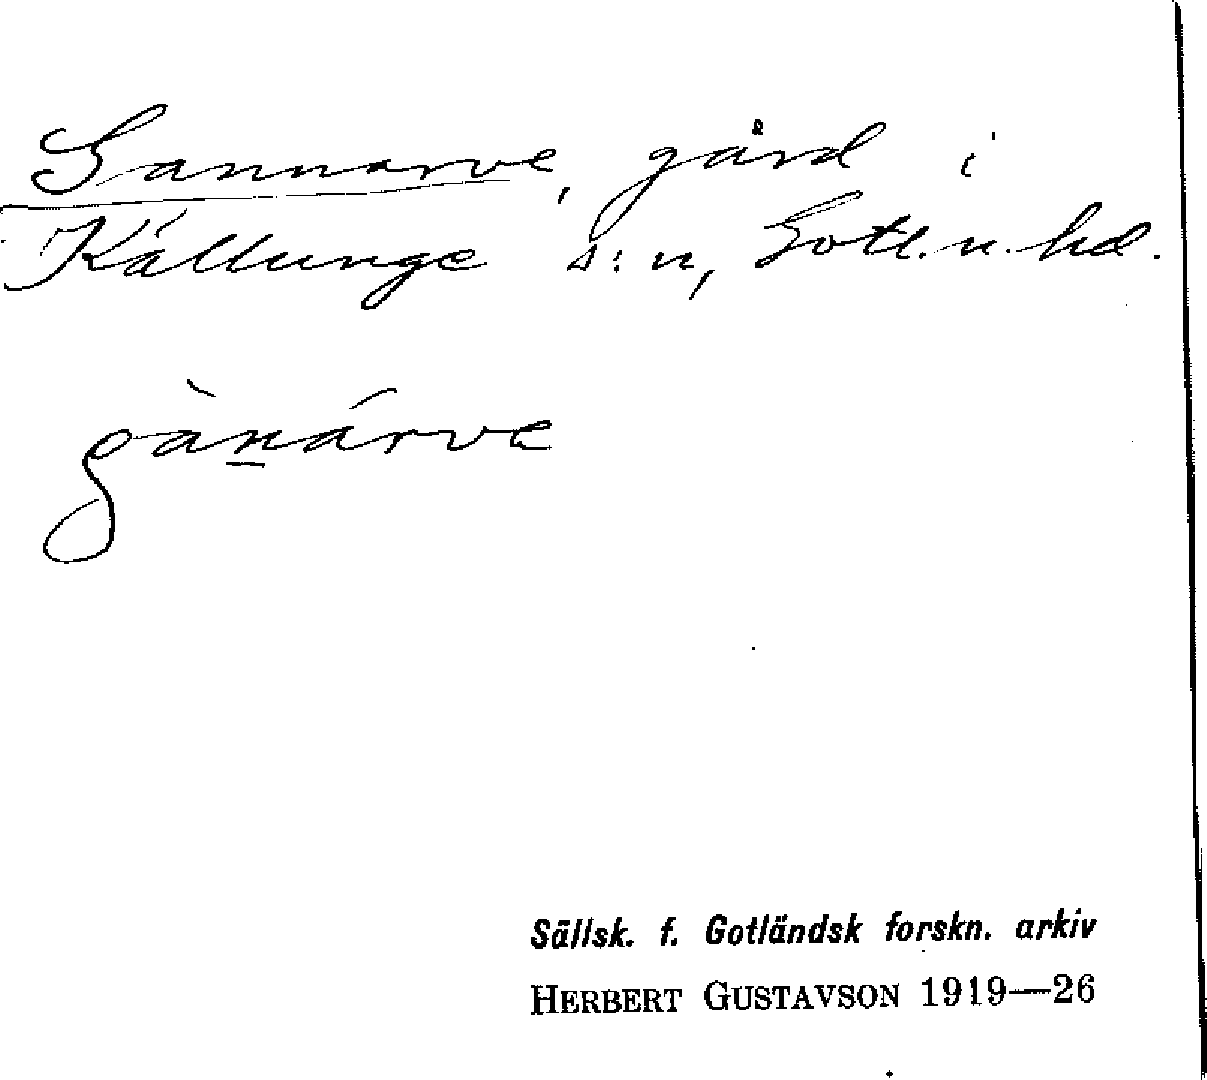 Gannarve, gård i
Källunge s:n, Gotl. n. hd.
gànárve
Sällsk. f. Gotländsk forskn. arkiv
HERBERT GUSTAVSON 1919—26